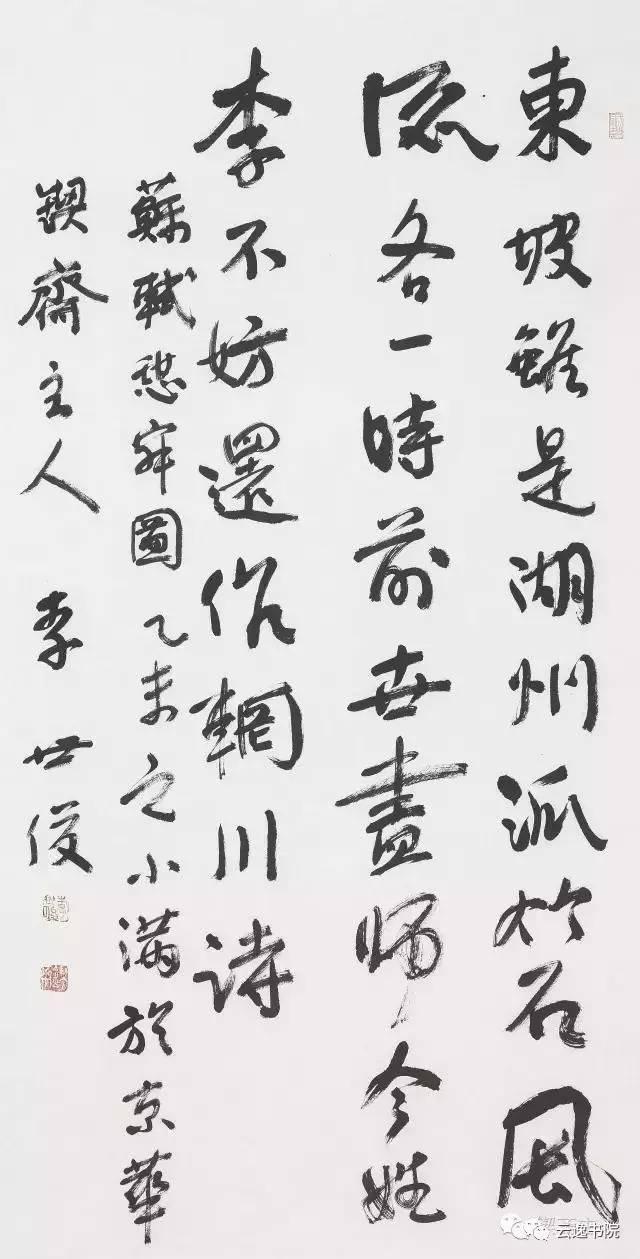 東坡雖是湖州派竹石風
流各一時前世畫師今姓
李不妨還作輞川詩
蘇軾憩寂圖乙未之小滿於京華
鍥齋主人 李世俊
云逸书院